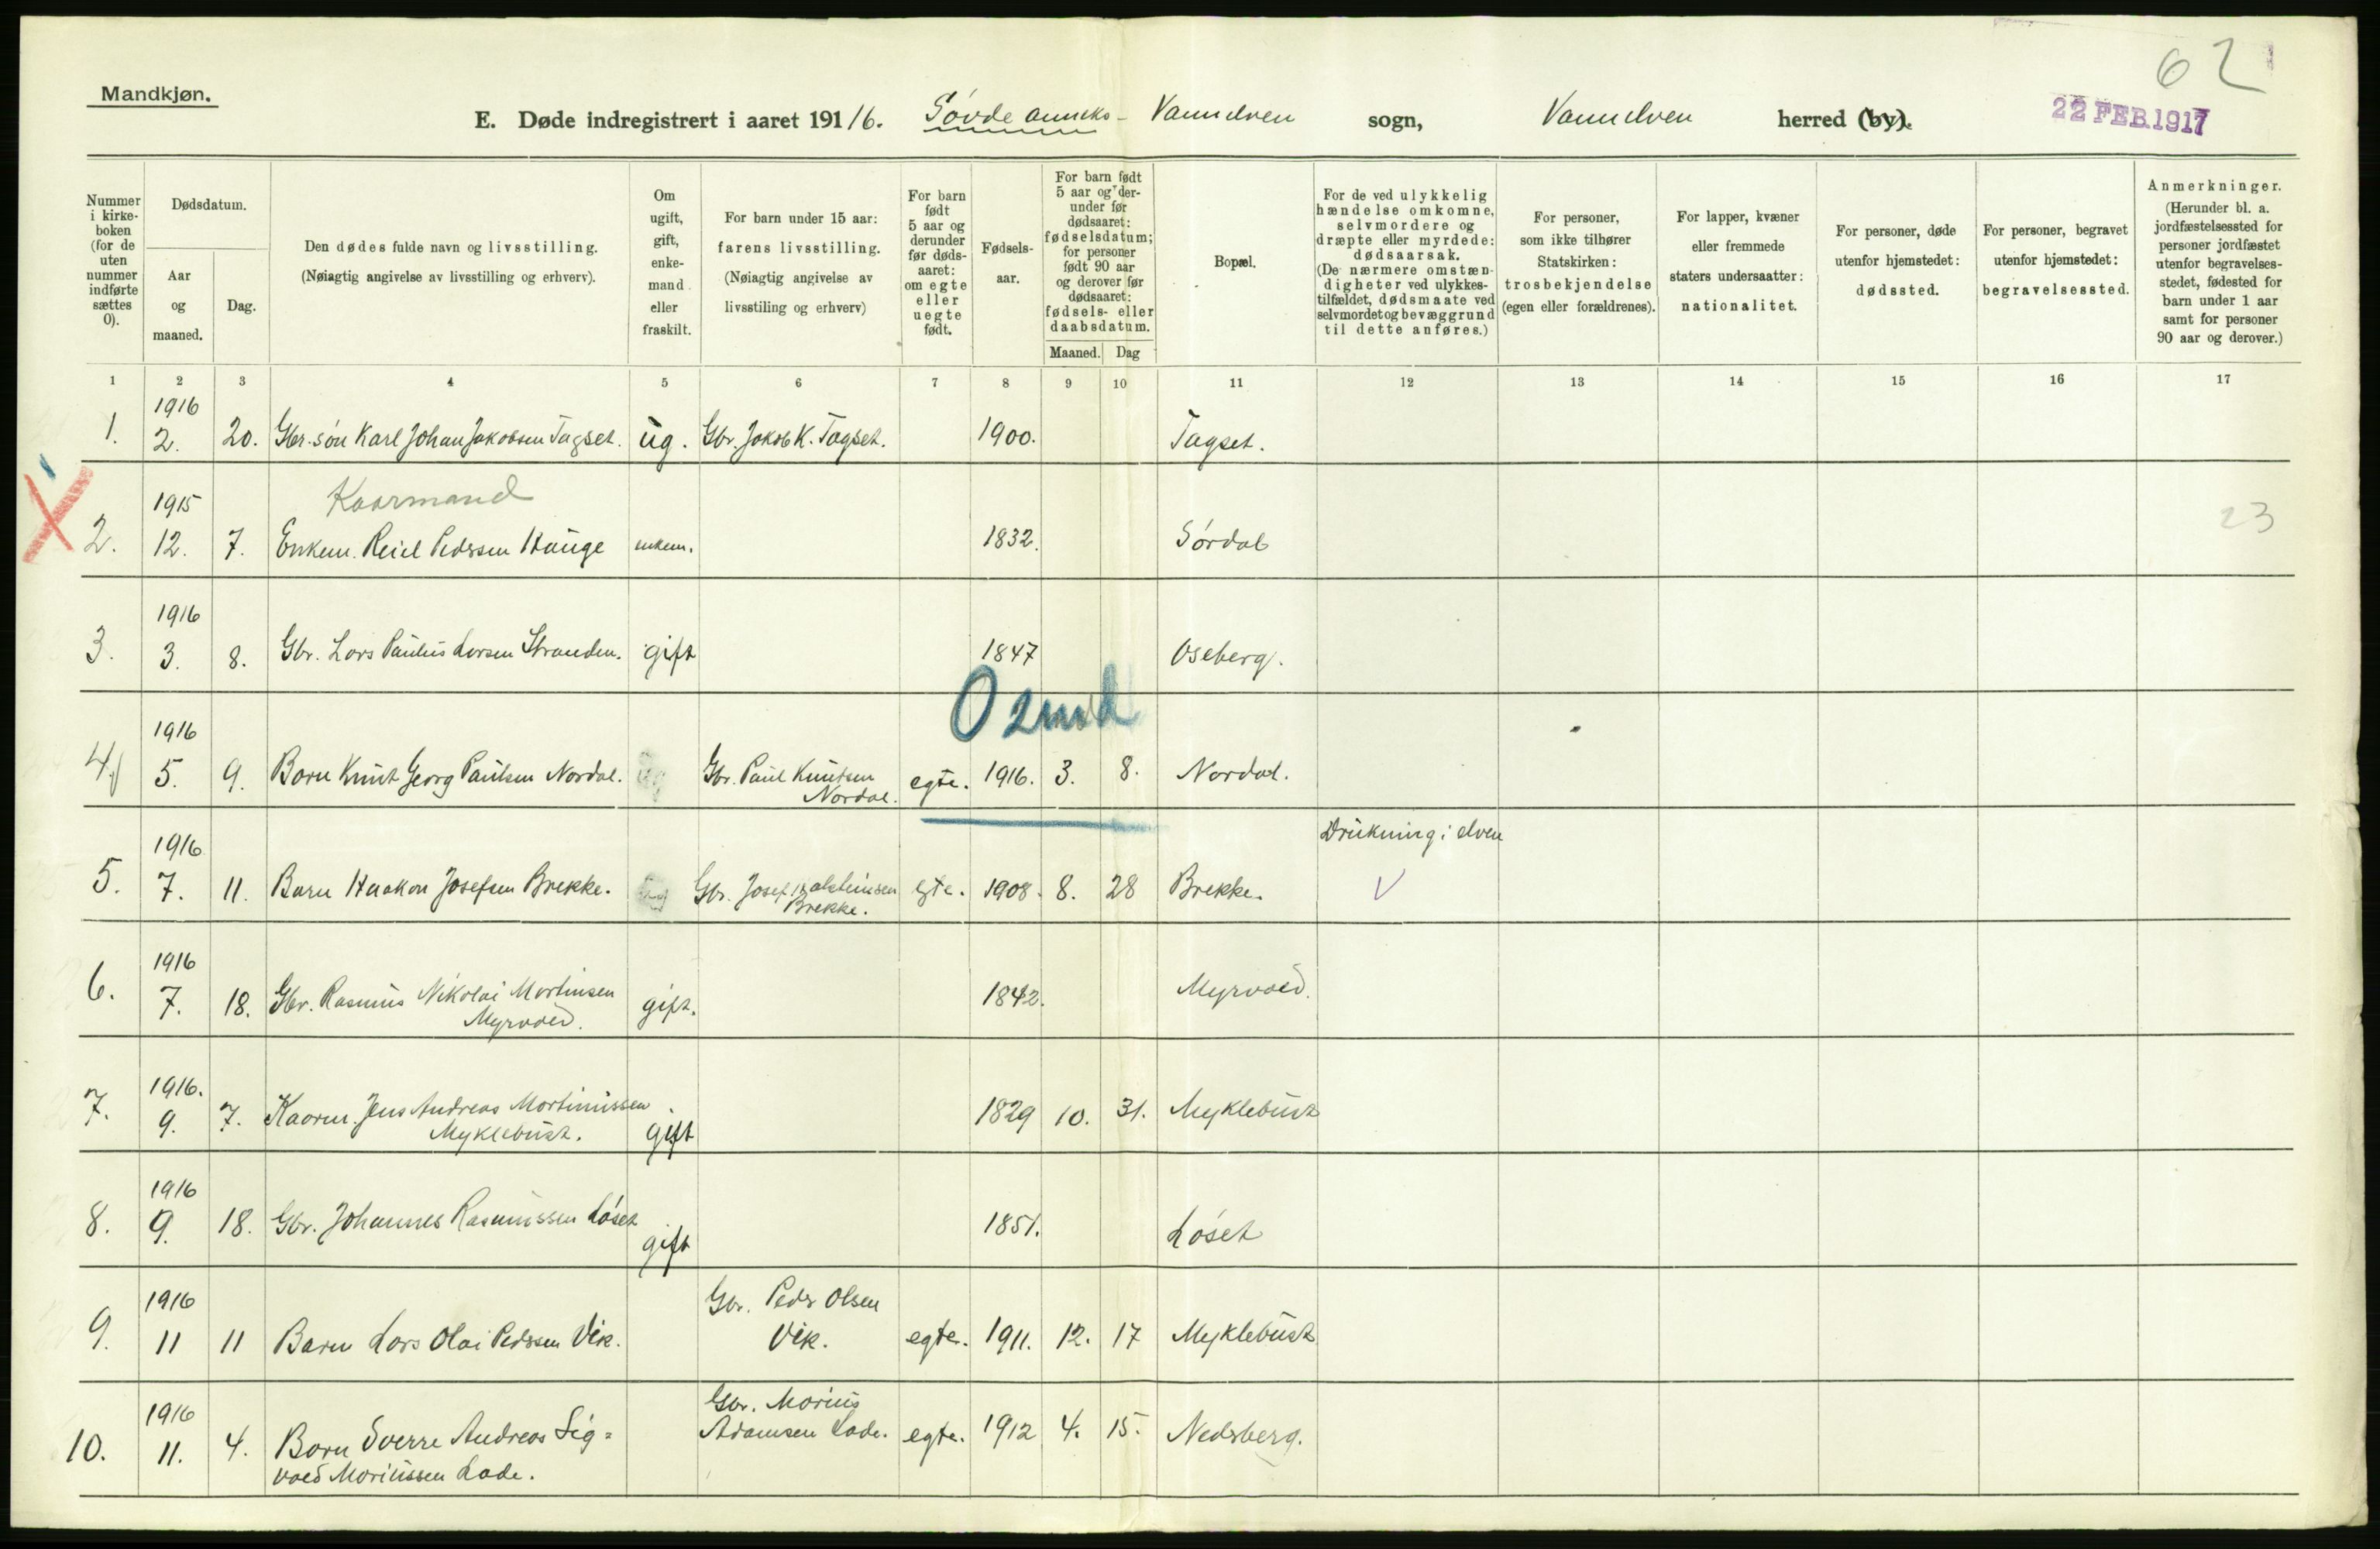 62
Mandkjøn.
E. Døde indregistrert i aaret 191 16. Søvde anneks - Vannelven sogn, Vannelven herred (by).
22 FEB. 1917
Nummer i kirke-boken (for de uten nummer indførte sættes 0).
Dødsdatum.
Aar og maaned.
Dag.
Den dødes fulde navn og livsstilling.
(Nøiagtig angivelse av livsstilling og erhverv).
Om ugift, gift, enke-mand eller fraskilt.
For barn under 15 aar:
farens livsstilling.
(Nøiagtig angivelse av
livsstiling og erhverv)
For barn født 5 aar og derunder før døds-aaret: om egte eller uegte født.
Fødsels-aar.
For barn født 5 aar og der-under før dødsaaret: fødselsdatum; for personer født 90 aar og derover før dødsaaret: fødsels- eller daabsdatum.
Maaned. Dag
Bopæl.
For de ved ulykkelig hændelse omkomne, selvmordere og dræpte eller myrdede: dødsaarsak. (De nærmere omstæn-digheter ved ulykkes-tilfældet, dødsmaate ved selvmordet og bevæggrund til dette anføres.)
For personer, som ikke tilhører Statskirken: trosbekjendelse (egen eller forældrenes).
For lapper, kvæner eller fremmede staters undersaatter: nationalitet.
For personer, døde utenfor hjemstedet: dødssted.
For personer, begravet utenfor hjemstedet: begravelsessted.
Anmerkninger. (Herunder bl. a. jordfæstelsessted for personer jordfæstet utenfor begravelses-stedet, fødested for barn under 1 aar samt for personer 90 aar og derover.)
1 2 3 4 5 6 7 8 9 10 11 12 13 14 15 16 17
1916
1. 2. 20. Gbr. søn Karl Johan Jakobsen Tagset. ug. Gbr. Jakob K. Tagset. 1900. Tagset.
1915 Kaarmand
2. 12. 7. Enkem. Reiel Pedersen Hauge enkem. 1832. Sørdal 23
1916
3. 3. 8. Gbr. Lars Paulus Larsen Stranden. gift 1847 Oseberg.
0 2 md
1916
4. 5. 9. Barn Knut Georg Paulsen Nordal. ug Gbr. Paul Knutsen Nordal. egte. 1916. 3. 8. Nordal.
1916 Drukning i elven
5. 7. 11. Barn Haakon Josefsen Brekke. ug Gbr. Josef Brekke. egte. 1908. 8. 28 Brekke.
1916
6. 7. 18. Gbr. Rasmus Nikolai Martinsen Myrvold. gift. 1842. Myrvold.
1916.
7. 9. 7. Kaarm. Jens Andreas Martinussen Myklebust. gift 1829 10. 31. Myklebust
1916
8. 9. 18. Gbr. Johannes Rasmussen Løset gift 1851. Løset
1916 Gbr. Peder Olsen
9. 11 11 Barn Lars Olai Pedersen Vik. Vik. egte. 1911. 12. 17 Myklebust
1916 Gbr. Marius
10. 11. 4. Barn Sverre Andreas Sig= Adamsen Lade. egte. 1912 4. 15. Nedreberg.
vald Mariussen Lade.